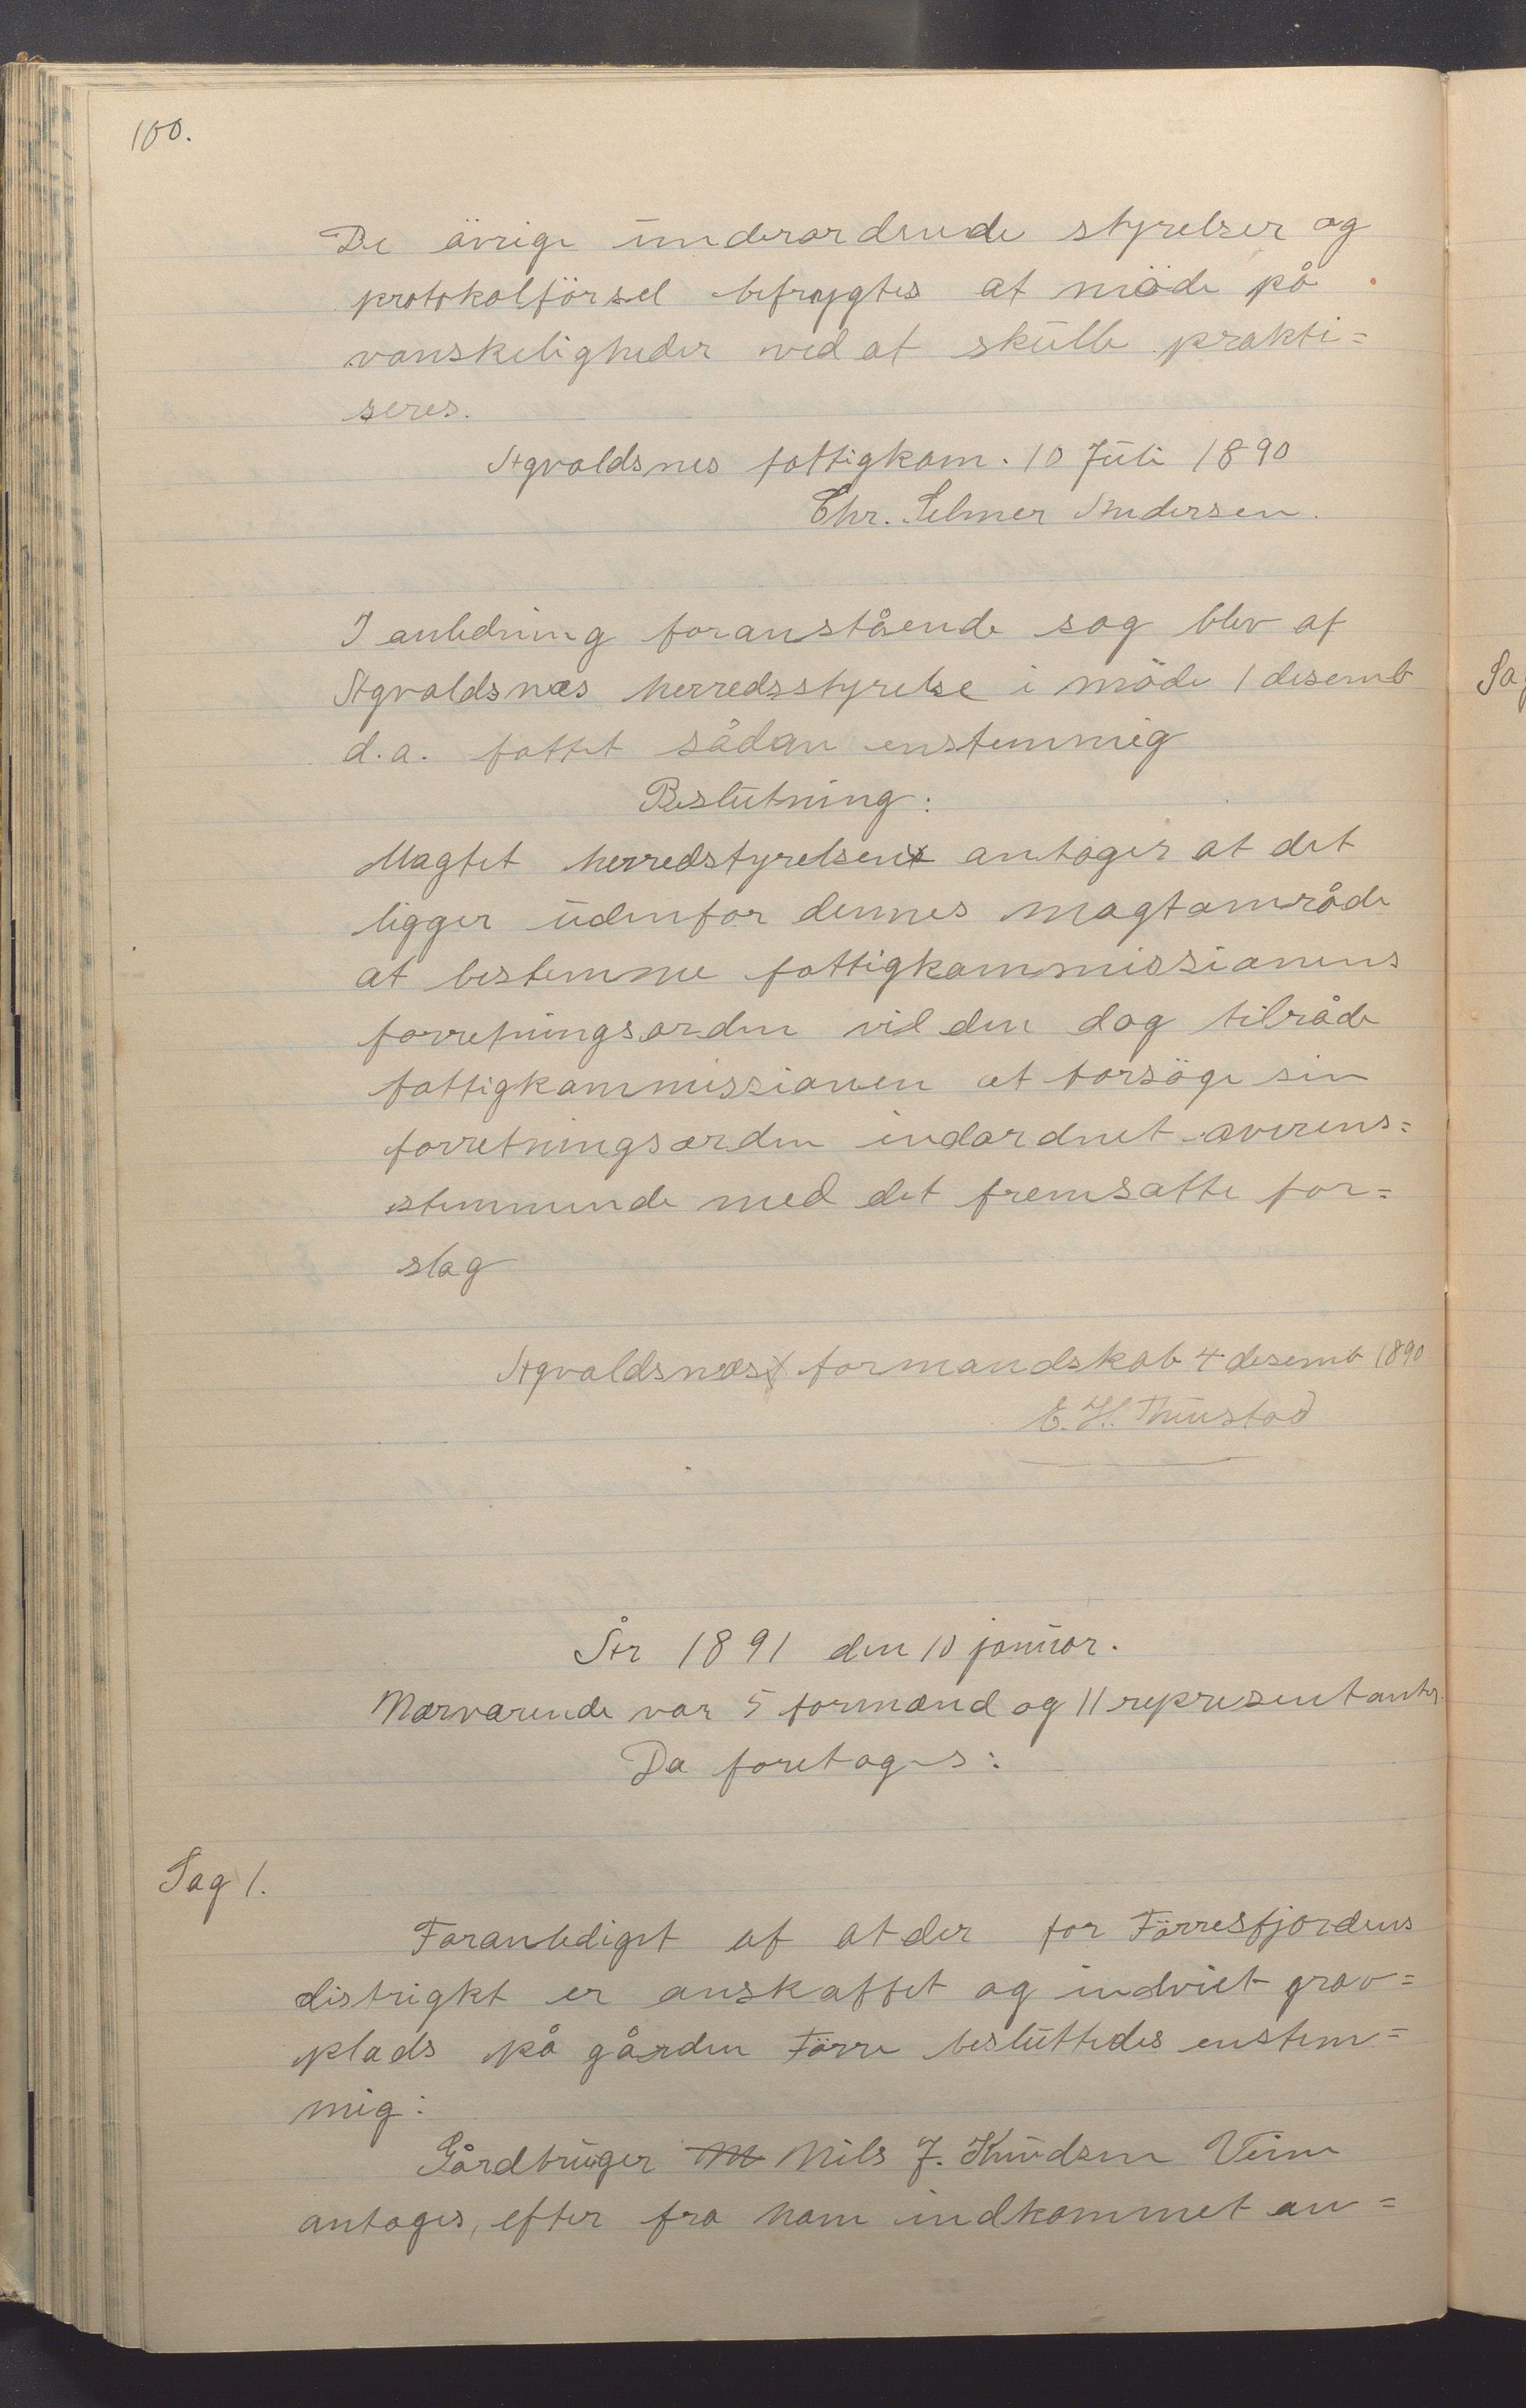 100.
De övrige underordnede styrelser og
protokolförsel befrygtes at möde på
vanskeligheder ved at skulle prakti=
seres.
Agvaldsnes fattigkom. 10 Juli 1890
Chr. Selmer Andersen.
I anledning foranstående sag blev af
Agvaldsnæs herredsstyrelse i möde 1 desemb
d.a. fattet sådan enstemmig
Beslutning:
Magtet herredstyrelsen antager at det
ligger udenfor dennes magtområde
at bestemme fattigkommissionens
forretningsorden vil den dog tilråde
fattigkommissionen at forsöge sin
forretningsorden indordnet overens=
stemmende med det fremsatte for=
slag
Agvaldsnæs formandskab 4 desemb 1890
E. H. Thuestad
År 1891 den 10 januar.
Nærværende var 5 formænd og 11 representanter.
Da foretages:
Sag 1.
Foranlediget af at der for Förresfjordens
distrigkt er anskaffet og indviet grav=
plads på gården Förre besluttedes enstem=
mig:
Gårdbruger Nils J. Knudsen Veim
antages, efter fra ham indkommet an=
Sag